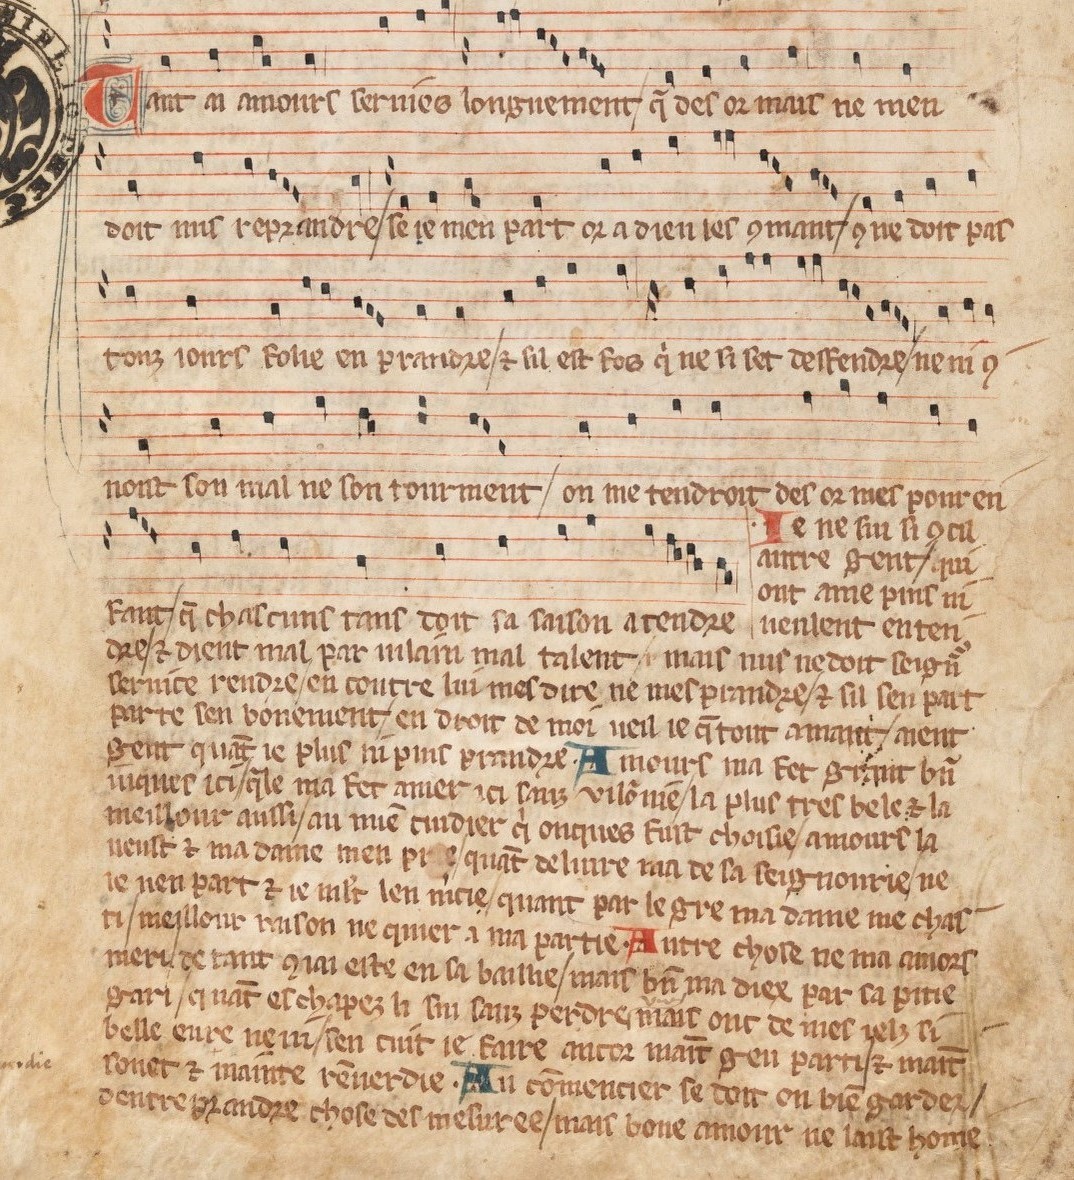 Tant ai amours seruies longuement / q̄ des or mais ne men
doit nus reprandre / se ie men part or a dieu les ꝯmant / ꝯ ne doit pas
touz iours folie en prandre / ⁊ sil est fos q̓ ne si set deffendre / ne ni ꝯ
noist son mal ne son tourment / on me tendroit des or mes pour en
fant / q̄ chascuns tans doit sa saison atendre
Ie ne sui si ꝯ cil
autre gent / qui
ont ame puis ni
ueulent enten
dre / ⁊ dient mal par uilain mal talent / mais nus ne doit seign̄
seruice rendre / en contre lui mesdire ne mesprandre / ⁊ sil sen part
parte sen bonement / en droit de moi ueil ie q̄ tout amant / aient
gent quāt ie plus ni puis prandre · Amours ma fet bn̄
iuques ici / q̄le ma fet amer sanz vilōnie / la plus tres bele ⁊ la
meillour aussi / au mie cuidier q̓ onques fust choisie / amours la
ueust ⁊ ma dame men / quāt deliure ma de sa seignourie / ne
ie nen part ⁊ ie len / quant par le gre ma dame me chas
ti / meillour raison ne quier a ma partie · Autre chose ne ma amors
meri / de tant ꝯ iai este en sa baillie / mais bn̄ ma diex par sa pitie
gari / quāt eschapez li sui sanz perdre mais ont de mes ielz si
belle eure ne ui / sen cuit ie faire ancor maīt geu parti / ⁊ maīt
sonet ⁊ mainte rēuerdie · Au cōmencier se doit on biē garder /
dentreprandre chose desmesuree / mais bone amour ne laist home